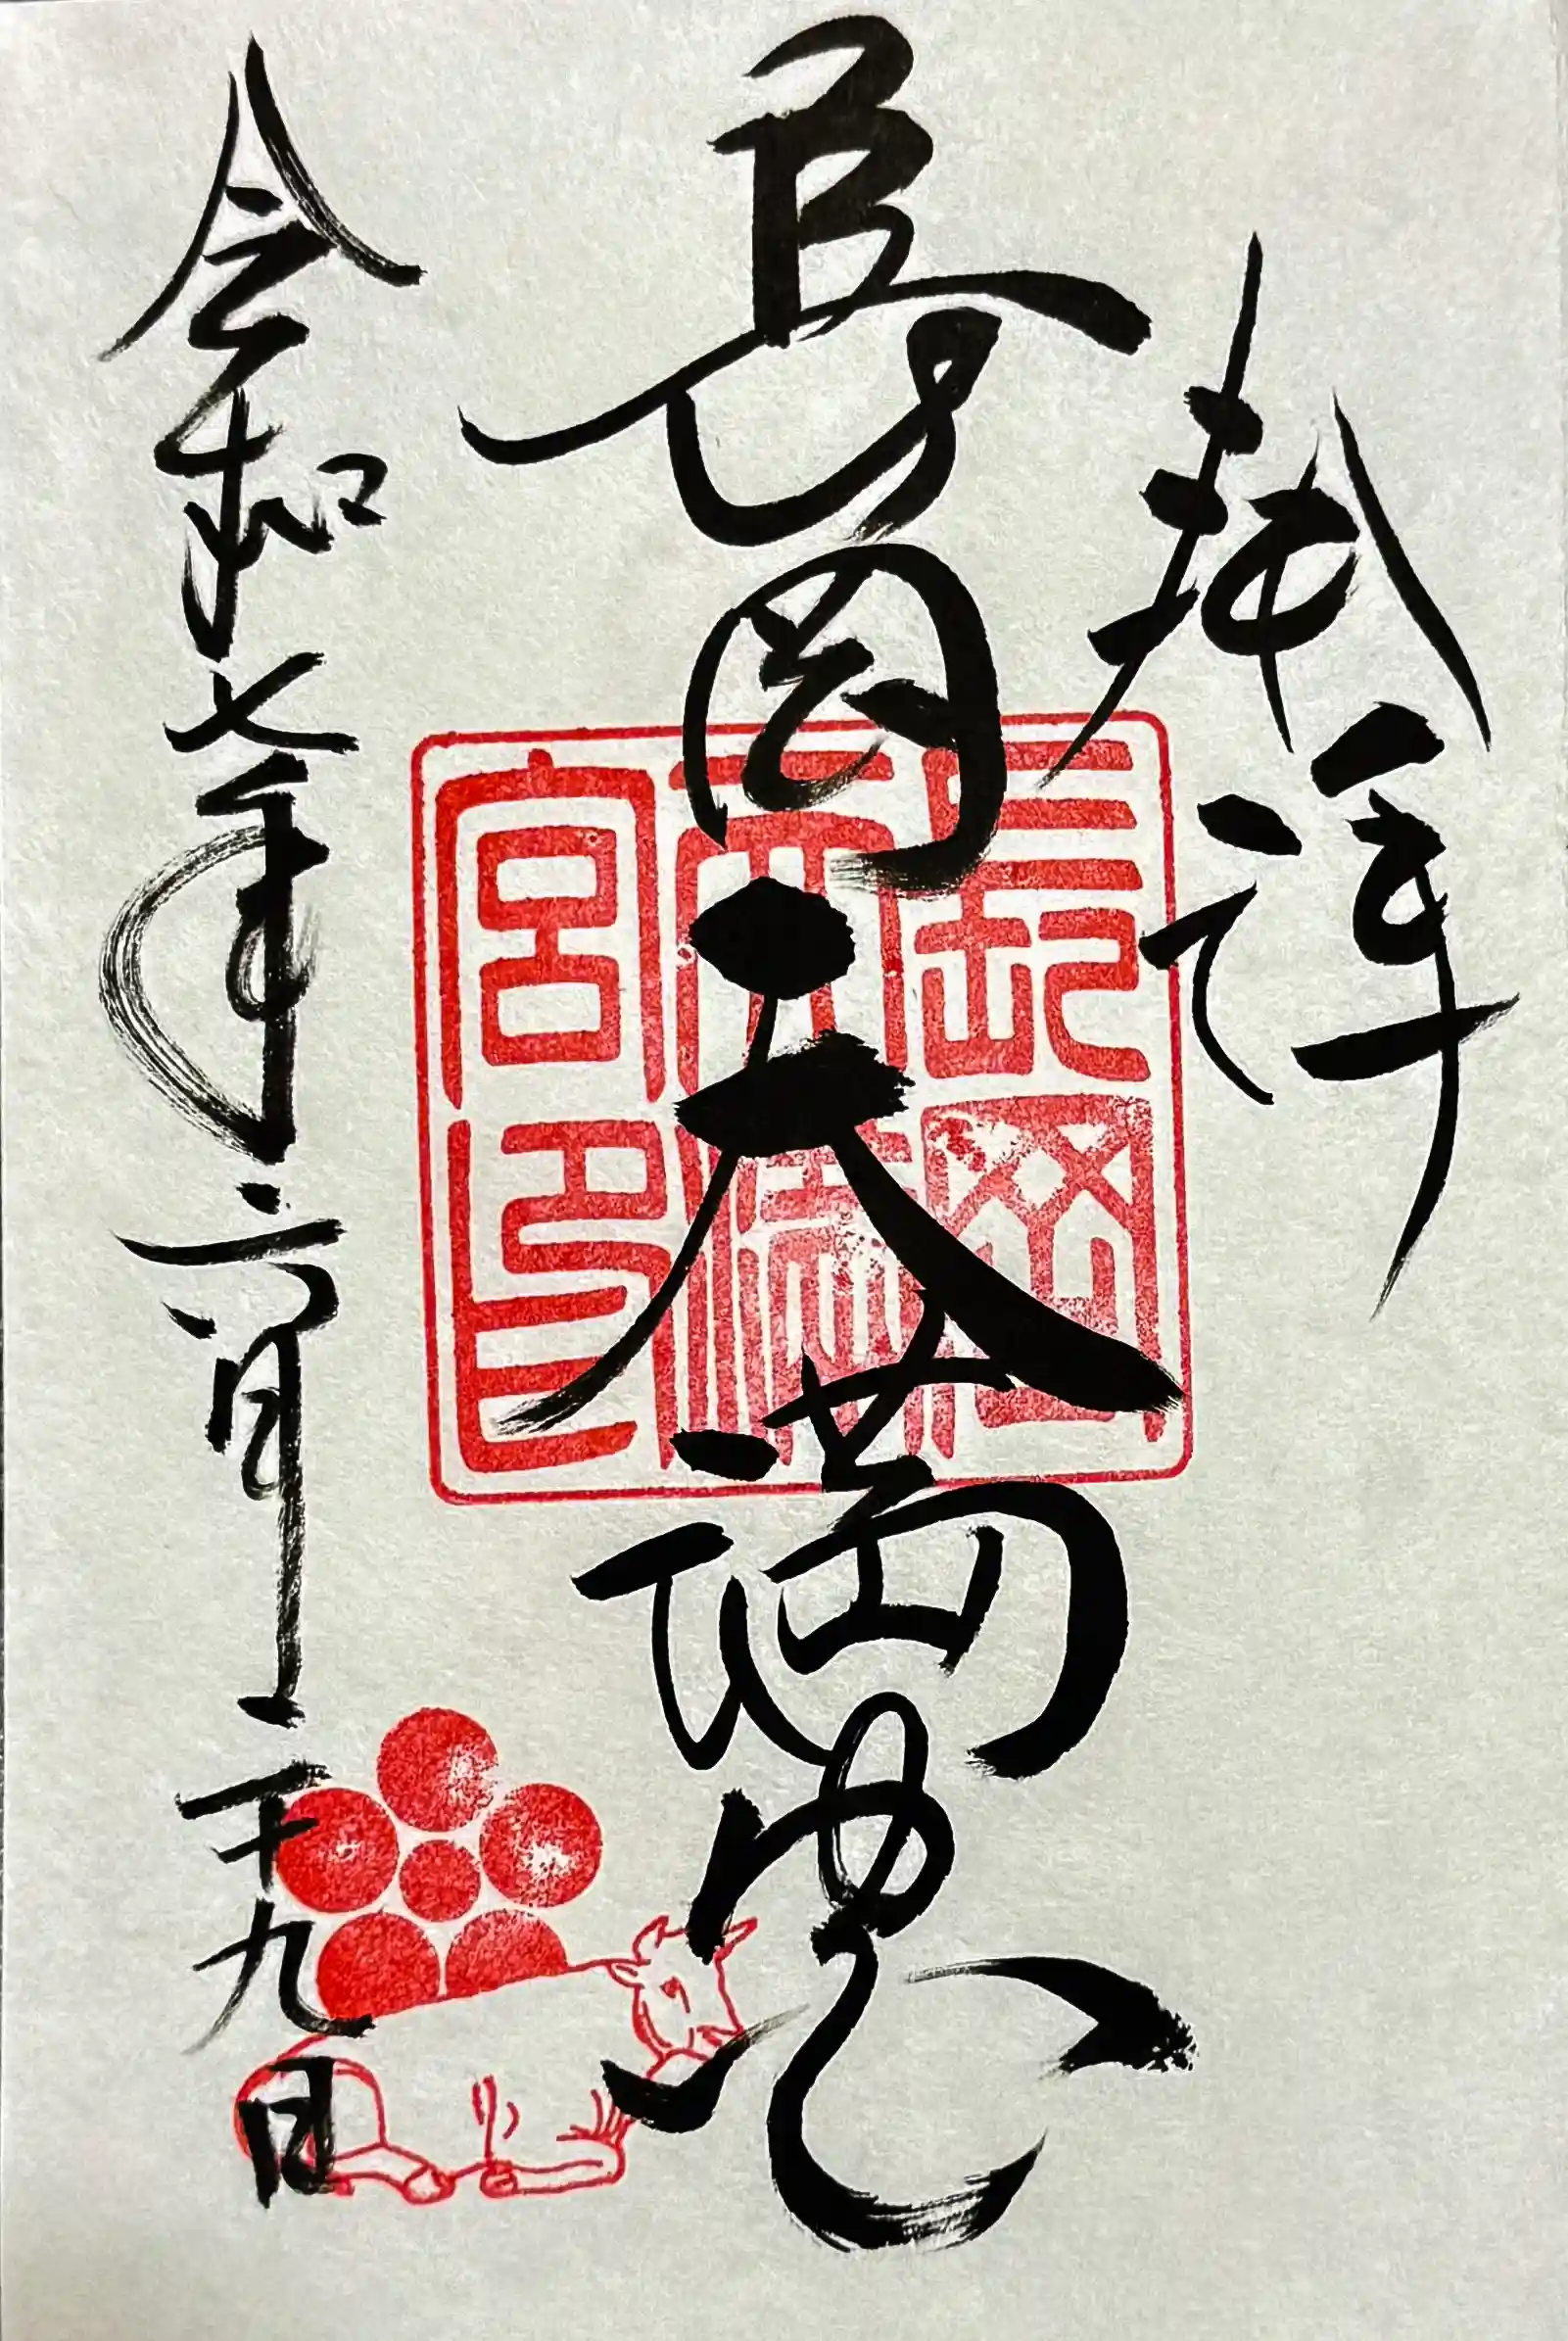 奉拝
長岡天満宮
令和七年六月二十九日
長岡
天満
宮印